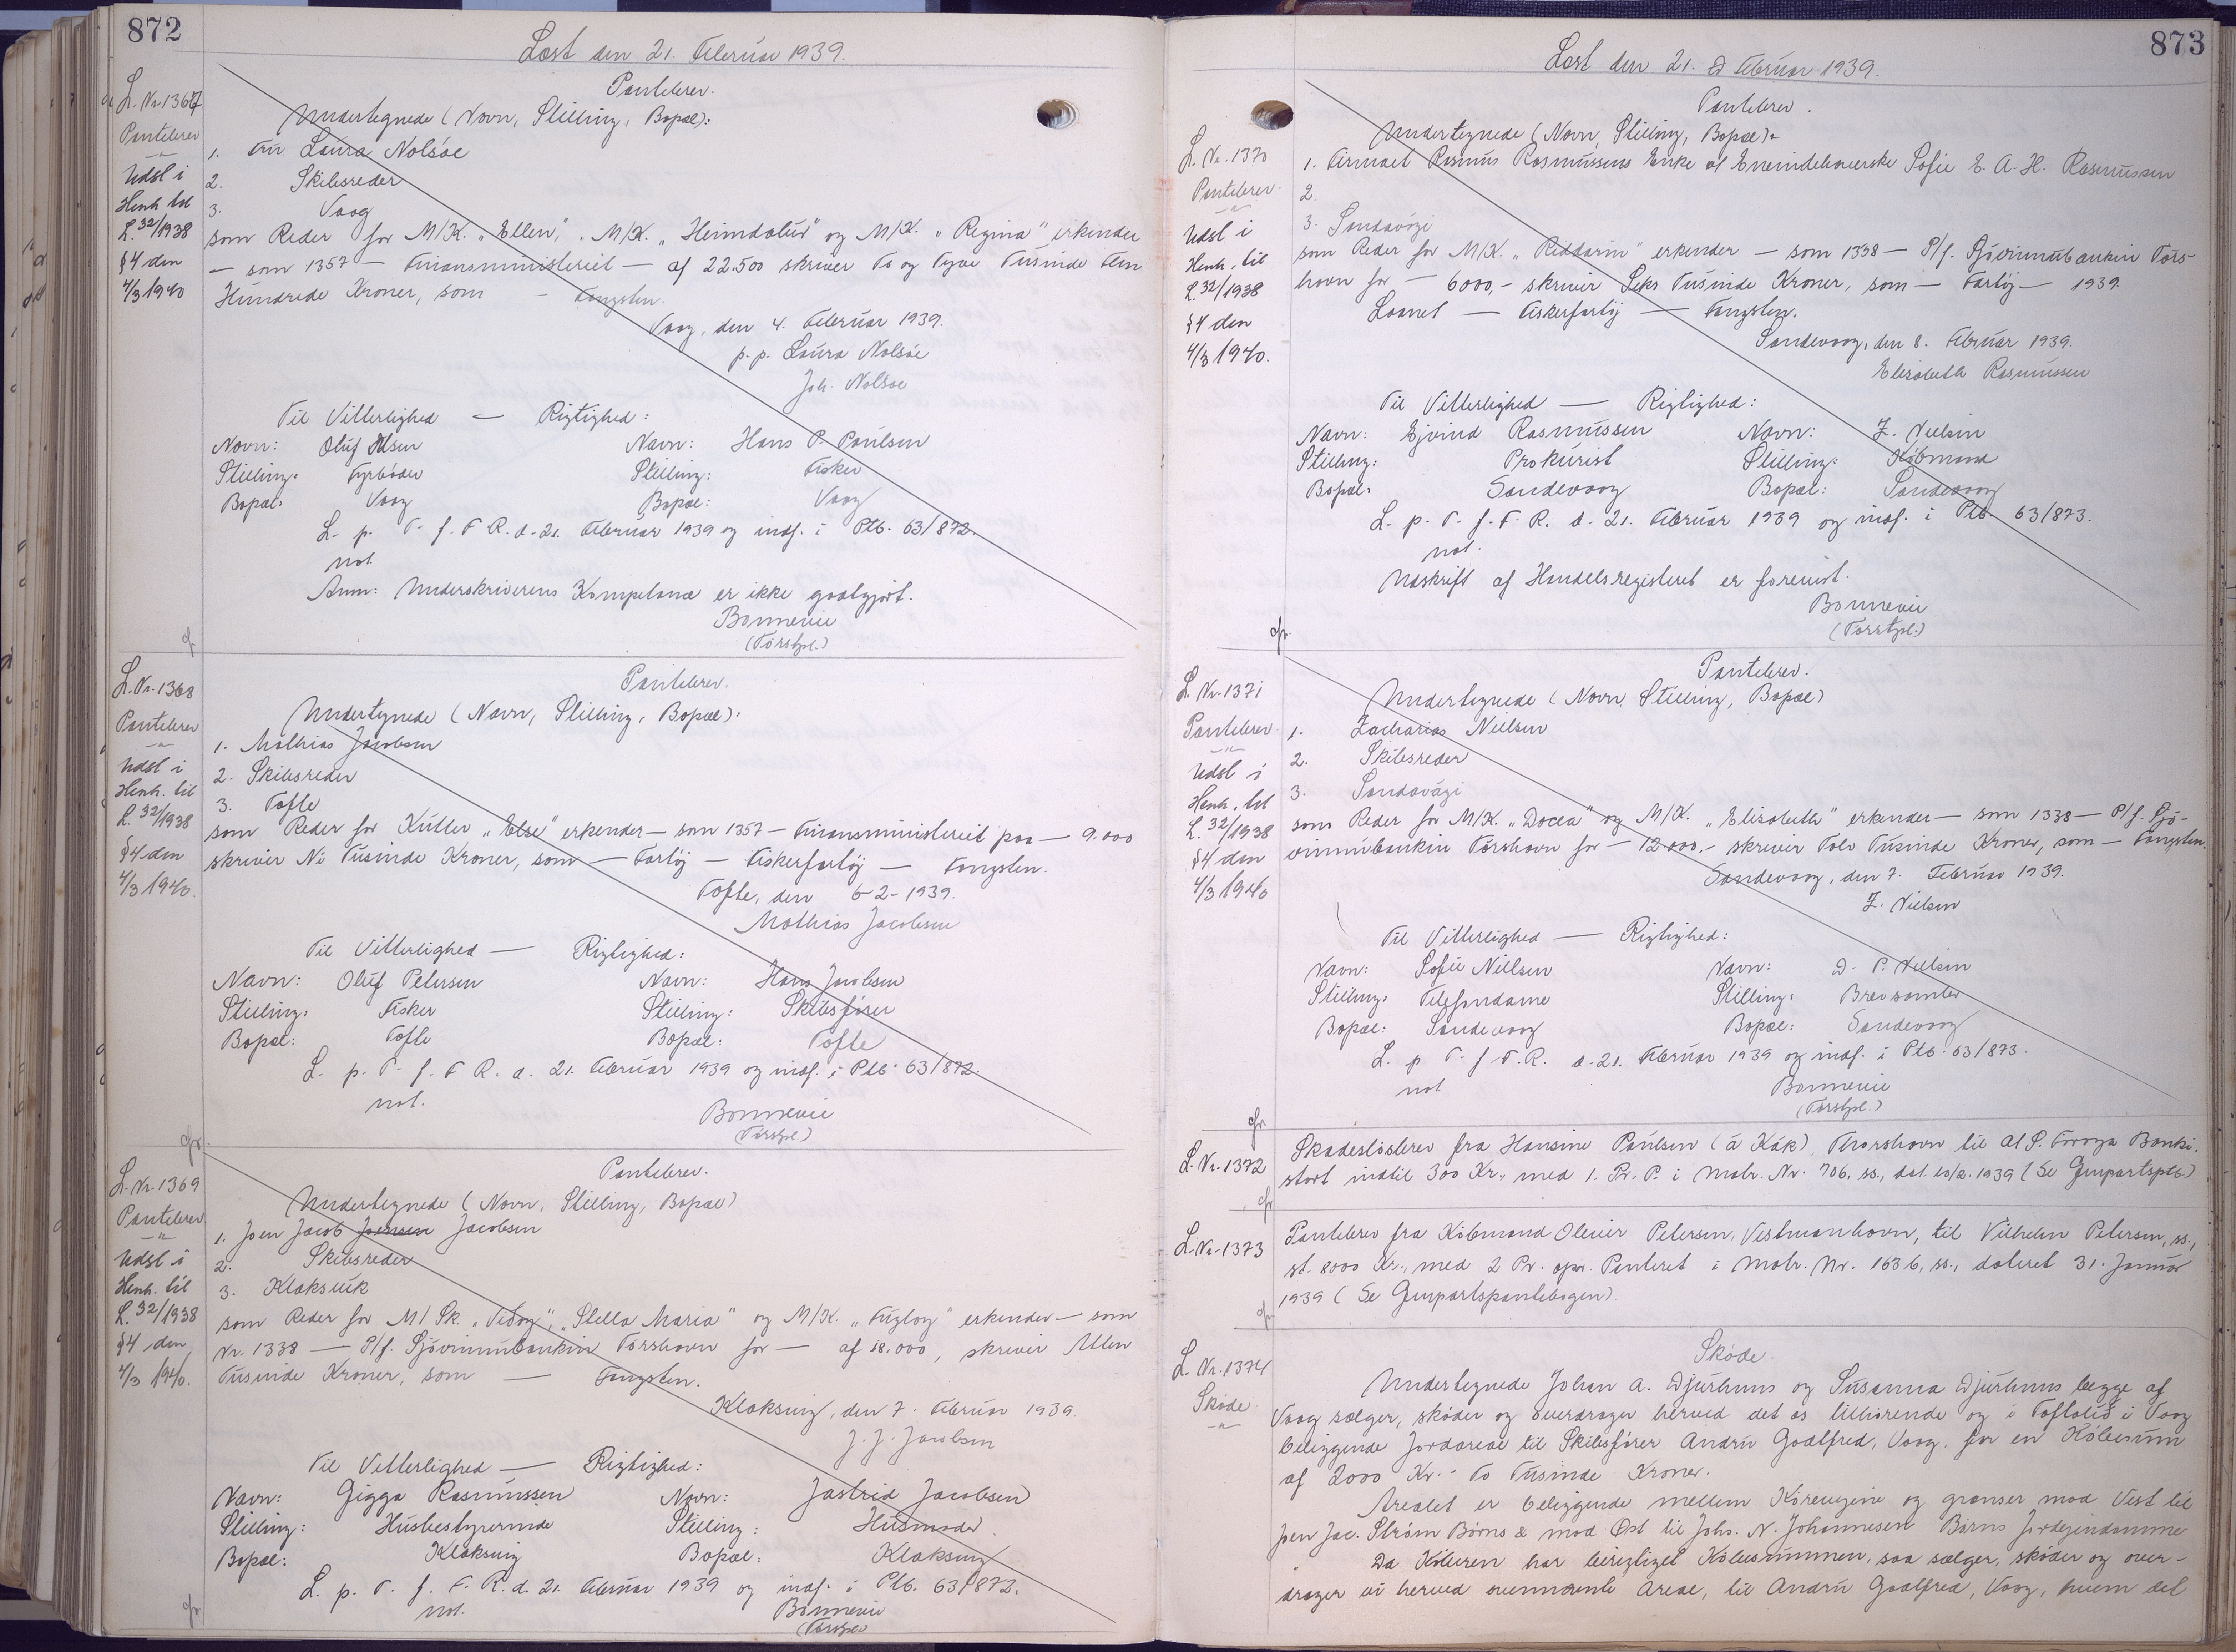 872
Læst den 21. Februar 1939.
L. Nr. 1367
Pantebrev
Udsl i
Henh. til
L. 32/1938
§4 den
4/3 1940
Pantebrev.
Undertegnede (Navn, Stilling, Bopæl):
1. Fru Laura Nolsöe
2. Skibsreder
3. Vaag
som Reder for M/K. "Ellen", M/K. "Heimdalur" og M/K. "Regina" erkender
— som 1357 — Finansministeriet — af 22.500 skriver To og Tyve Tusinde Fem
Hundrede Kroner, som — Fangsten.
Vaag, den 4. Februar 1939.
p.p. Laura Nolsöe
Joh. Nolsöe
Til Vitterlighed — Rigtighed:
Navn: Oluf Olsen Navn: Hans P. Poulsen
Stilling: Fyrbøder Stilling: Fisker
Bopæl: Vaag Bopæl: Vaag
L. p. T. f. F. R. d. 21. Februar 1939 og indf. i Ptb. 63/872.
not.
Anm: Underskriverens Kompetance er ikke godtgjort.
Bonnevie
(Torstpl.)
L. Nr. 1368
Pantebrev
Udsl i
Henh. til
L. 32/1938
§4 den
4/3 1940.
Pantebrev.
Undertegnede (Navn, Stilling, Bopæl):
1. Mathias Jacobsen
2. Skibsreder
3. Tofte
som Reder for Kutter "Else" erkender — som 1357 — Finansministeriet paa — 9.000
skriver Ni Tusinde Kroner, som — Fartöj — Fiskerfartöj — Fangsten.
Tofte, den 6-2-1939.
Mathias Jacobsen
Til Vitterlighed — Rigtighed:
Navn: Oluf Petersen Navn: Hans Jacobsen
Stilling: Fisker Stilling: Skibsfører
Bopæl: Tofte Bopæl: Tofte
L. p. T. f. F. R. d. 21. Februar 1939 og indf. i Ptb. 63/872.
not.
Bonnevie
(Torstpl.)
L. Nr. 1369
Pantebrev
Udsl i
Henh. til
L. 32/1938
§4 den
4/3 1940.
Pantebrev.
Undertegnede (Navn, Stilling, Bopæl)
1. Joen Jacob Joensen Jacobsen
2. Skibsreder
3. Klaksvik
som Reder for M/Sk. "Vidoy", "Stella Maria" og M/K. "Fugloy" erkender — som
Nr. 1338 — P/f. Sjóvinnubankin Torshavn for — af 18.000, skriver Atten
Tusinde Kroner, som — Fangsten.
Klaksvig, den 7. Februar 1939.
J. J. Jacobsen
Til Vitterlighed — Rigtighed:
Navn: Gigga Rasmussen Navn: Jastrid Jacobsen
Stilling: Husbestyrerinde Stilling: Husmoder
Bopæl: Klaksvig Bopæl: Klaksvig
L. p. T. f. F. R. d. 21. Februar 1939 og indf. i Ptb. 63/872.
not.
Bonnevie
(Torstpl.)
873
Læst den 21. Februar 1939.
L. Nr. 1370
Pantebrev
Udsl i
Henh. til
L. 32/1938
§4 den
4/3 1940.
Pantebrev.
Undertegnede (Navn, Stilling, Bopæl):
1. Firmaet Rasmus Rasmussens Enke v/ Eneindehaverske Sofie E. A. H. Rasmussen
2.
3. Sandavógi
som Reder for M/K. "Riddarin" erkender — som 1338 — P/f. Sjóvinnubankin Tors-
havn for — 6000,- skriver Seks Tusinde Kroner, som — Fartöj — 1939.
Laanet — Fiskerfartöj — Fangsten.
Sandevaag, den 8. Februar 1939.
Elisabeth Rasmussen
Til Vitterlighed — Rigtighed:
Navn: Ejvind Rasmussen Navn: Z. Nielsen
Stilling: Prokurist Stilling: Købmand
Bopæl: Sandevaag Bopæl: Sandevaag
L. p. T. f. F. R. d. 21. Februar 1939 og indf. i Ptb. 63/873.
not.
Udskrift af Handelsregisteret er forevist.
Bonnevie
(Torstpl.)
L. Nr. 1371
Pantebrev
Udsl i
Henh. til
L. 32/1938
§4 den
4/3 1940
Pantebrev.
Undertegnede (Navn, Stilling, Bopæl)
1. Zacharias Nielsen
2. Skibsreder
3. Sandavági
som Reder for M/K. "Docea" og M/K. "Elisabeth" erkender — som 1338 — P/f. Sjó-
vinnubankin Torshavn for — 12.000.- skriver Tolv Tusinde Kroner, som — Fangsten.
Sandevaag, den 7. Februar 1939.
Z. Nielsen
Til Vitterlighed — Rigtighed:
Navn: Sofie Nielsen Navn: D. P. Nielsen
Stilling: Telefondame Stilling: Brevsamler
Bopæl: Sandevaag Bopæl: Sandevaag
L. p. T. f. F. R. d. 21. Februar 1939 og indf. i Ptb. 63/873.
not
Bonnevie
(Torstpl.)
L. Nr. 1372
Skadesløsbrev fra Hansine Poulsen (á Kák) Thorshavn til A/S. Føroya Banki.
stort indtil 300 Kr., med 1. Pr. P. i Matr. Nr. 706. ss., dat. 20/2. 1939 (Se Genpartsptb)
L. Nr. 1373
Pantebrev fra Købmand Oliver Petersen, Vestmanhavn, til Vilhelm Petersen, ss.,
st. 8000 Kr., med 2 Pr. opr. Panteret i Matr. Nr. 1636, ss., dateret 31. Januar
1939 (Se Genpartspantebogen).
L. Nr. 1374
Skøde
Skøde.
Undertegnede Johan A. Djurhuus og Susanna Djurhuus begge af
Vaag sælger, skøder og overdrager herved det os tilhørende og i Toftalið i Vaag
beliggende Jordareal til Skibsfører Andru Godtfred, Vaag. for en Købesum
af 2000 Kr. - To Tusinde Kroner.
Arealet er beliggende mellem Körevejene og grænser mod Vest til
Joen Jac. Strøm Børns & mod Øst til Johs. N. Johannesen Børns Jordejendomme
Da Køberen har berigtiget Købesummen, saa sælger, skøder og over-
drager vi herved ovennævnte Areal, til Andru Godtfred, Vaag, hvem det